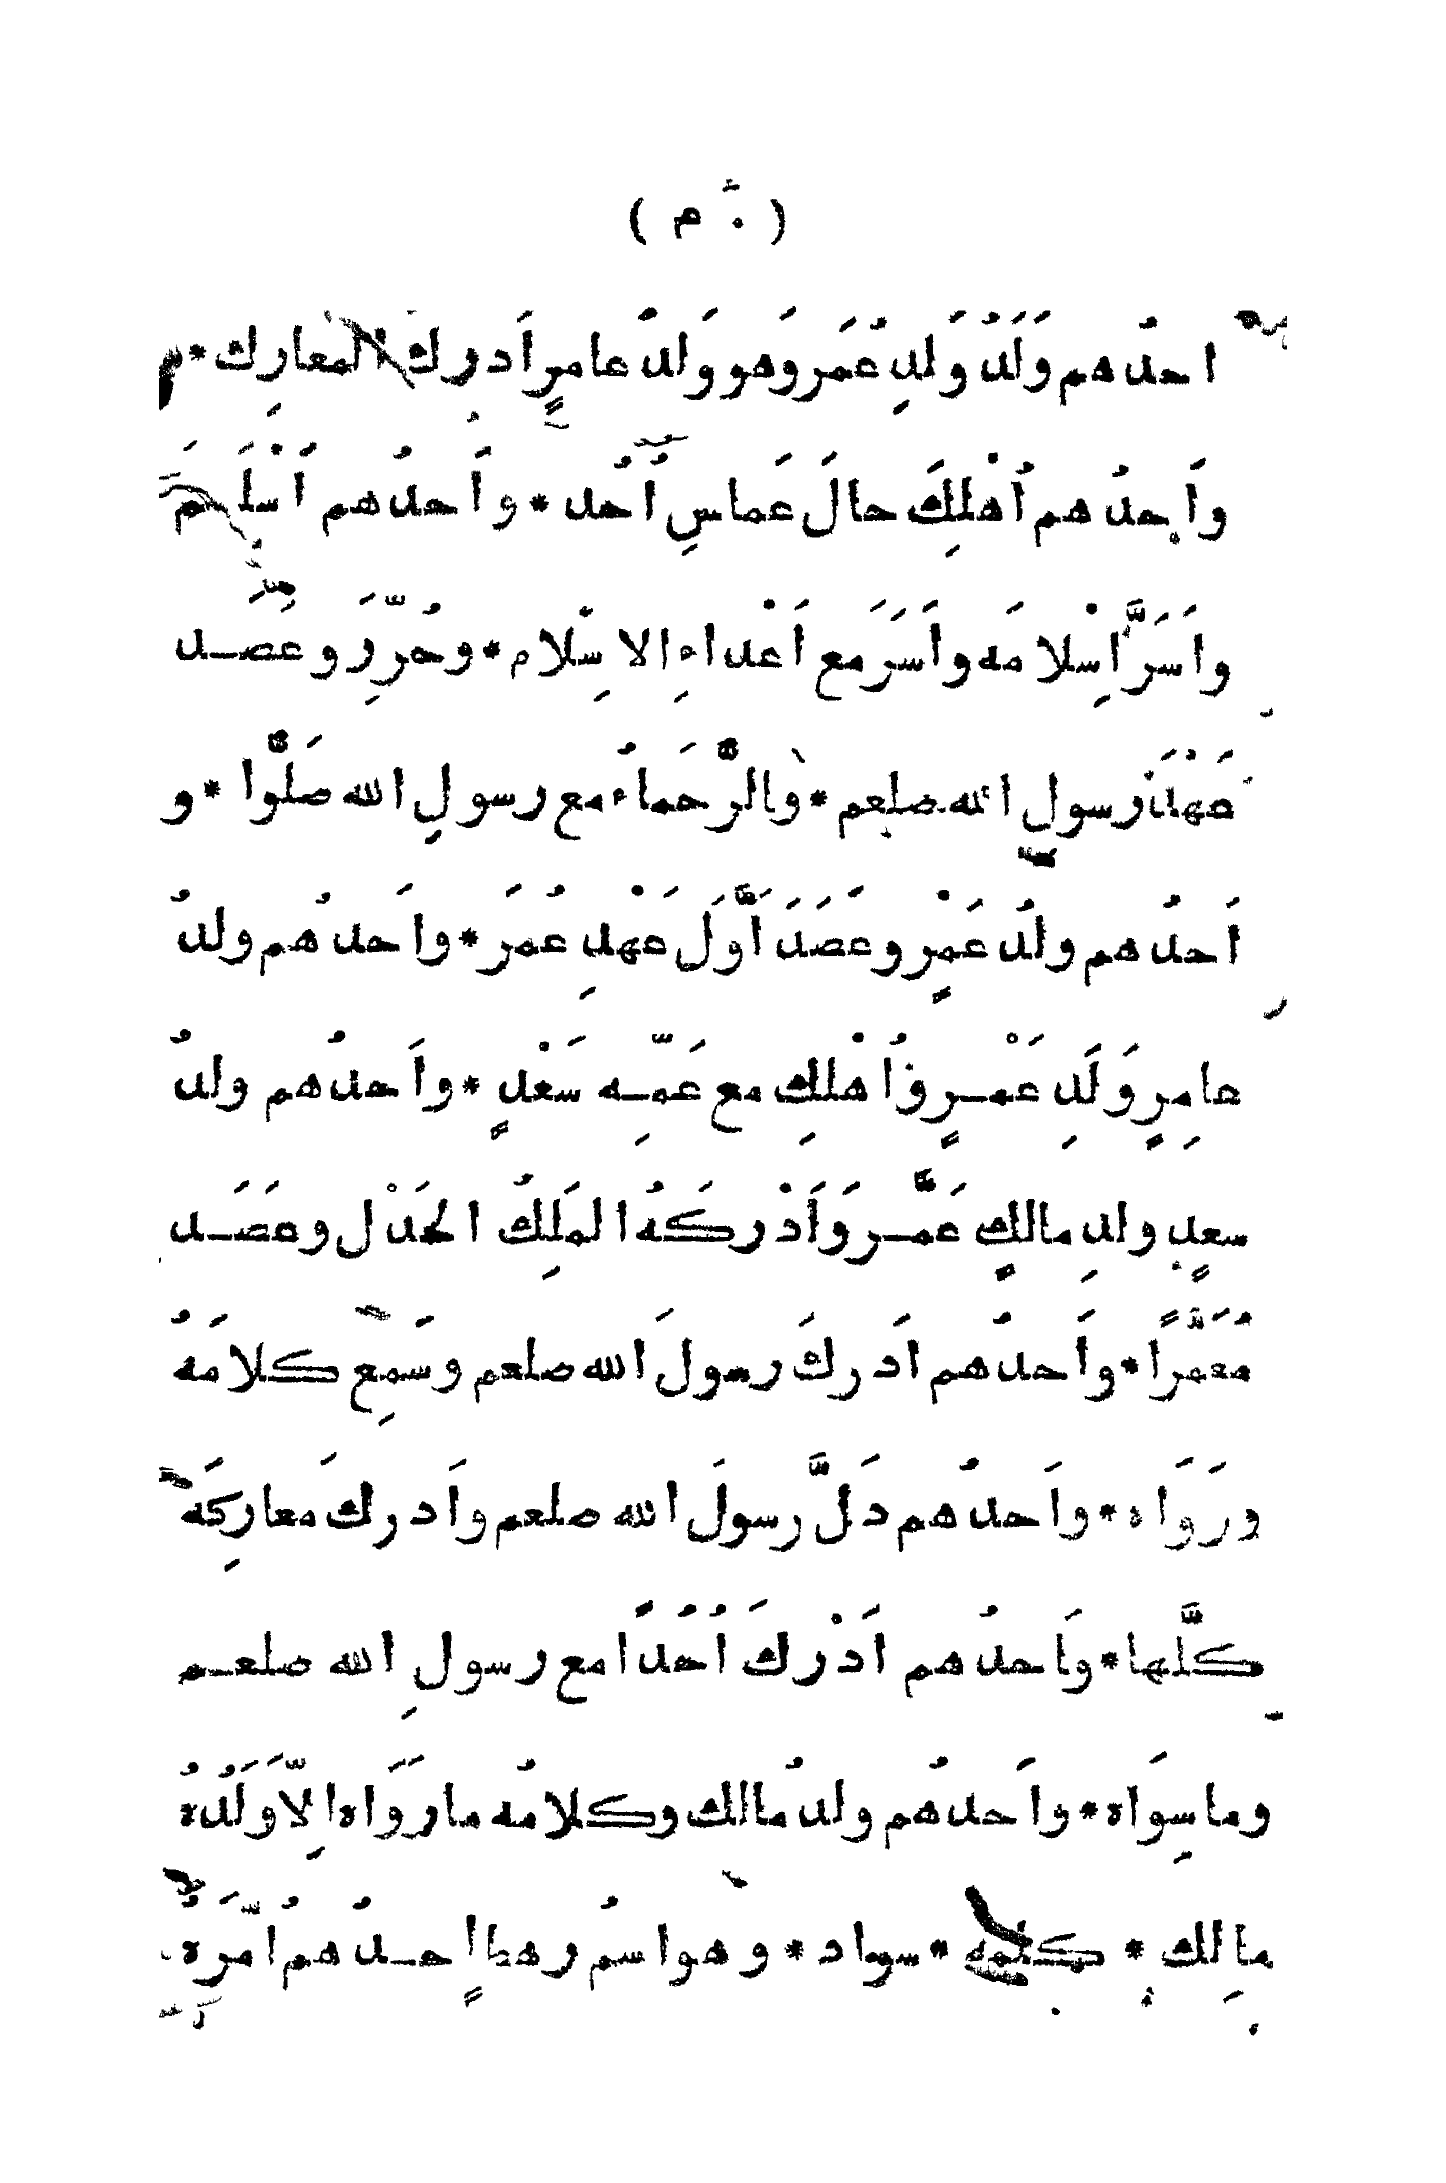 ( ٠ م )
احدُهم وَلَدُ ولدِ عُمَر وهو ولدُ عامرٍ ادرك المعارِك * م
واَحدُهم اُهْلِكَ حالَ عَماسِ اُحُد * واَحدُهم اَسْلَمَ
واَسَرَّ اِسْلامَه واَسَرَ مع اَعْداءِ الاِسْلام * وحُرِّرَ وعَصَد
رسول الله صلعم * والرُّحَماءُ مع رسولِ الله صَلُّوا * و
اَحدُهم ولدُ عَمْرٍ وعَصَدَ اَوَّلَ عَهْدِ عُمَر * واَحدُهم ولدُ
عامِرٍ وَلَدِ عَمْرٍو اُهْلِك مع عَمِّه سَعْدٍ * واَحدُهم ولدُ
سعدٍ ولدِ مالكٍ عَمَّر وَاَدْرَكَهُ المَلِكُ الحَدْل وعَصَد
مُعَمَّرًا * واَحدُهم اَدركَ رسولَ الله صلعم وسَمِع كلامَهُ
ورَوَاه * واَحدُهم دَلَّ رسولَ الله صلعم واَدرك معارِكَه
كلَّها * واَحدُهم اَدْركَ اُحُدًا مع رسولِ الله صلعم
وما سِواه * واَحدُهم ولدُ مالك وكلامُه ما رَوَاه اِلّا وَلَدُهُ
مالك * كلمه * سواد * وهو اسمُ رهطٍ احدُهمُ اَمَّرَهُ